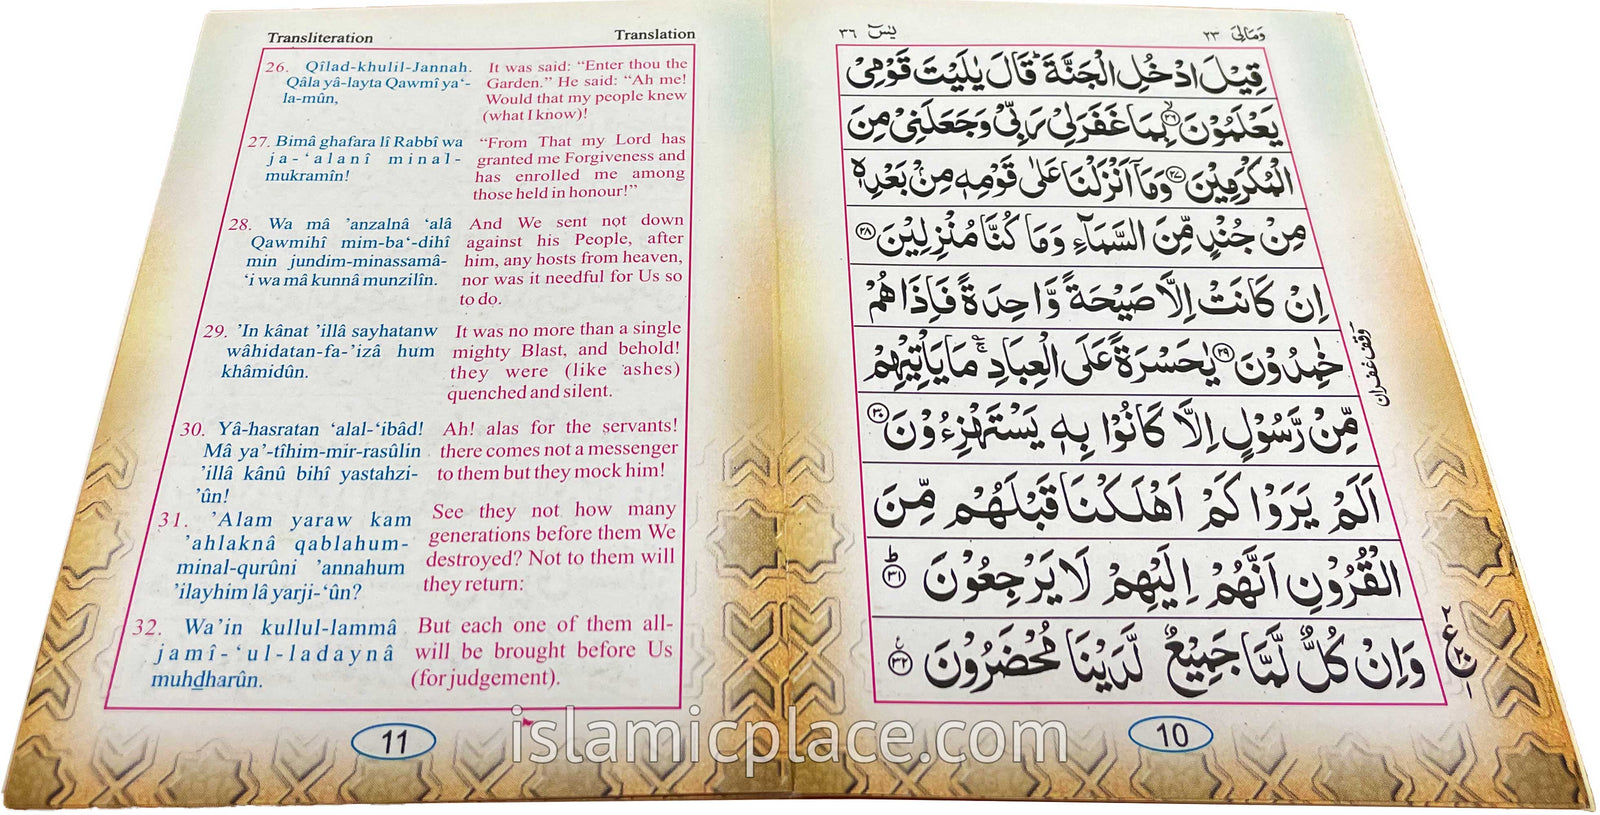 Transliteration
Translation
26. Qîlad-khulil-Jannah.
Qâla yâ-layta Qawmî ya‘-
la-mûn,
It was said: “Enter thou the
Garden.” He said: “Ah me!
Would that my people knew
(what I know)!
27. Bimâ ghafara lî Rabbî wa
ja-‘alanî minal-
mukramîn!
“From That my Lord has
granted me Forgiveness and
has enrolled me among
those held in honour!”
28. Wa mâ ’anzalnâ ‘alâ
Qawmihî mim-ba‘-dihî
min jundim-minassamâ-
‘i wa mâ kunnâ munzilîn.
And We sent not down
against his People, after
him, any hosts from heaven,
nor was it needful for Us so
to do.
29. ’In kânat ’illâ sayhatanw
wâhidatan-fa-’izâ hum
khâmidûn.
It was no more than a single
mighty Blast, and behold!
they were (like ashes)
quenched and silent.
30. Yâ-hasratan ‘alal-‘ibâd!
Mâ ya’-tîhim-mir-rasûlin
’illâ kânû bihî yastahzi-
’ûn!
Ah! alas for the servants!
there comes not a messenger
to them but they mock him!
31. ’Alam yaraw kam
’ahlaknâ qablahum-
minal-qurûni ’annahum
’ilayhim lâ yarji-‘ûn?
See they not how many
generations before them We
destroyed? Not to them will
they return:
32. Wa’in kullul-lammâ
jamî-‘ul-ladaynâ
muhdharûn.
But each one of them all-
will be brought before Us
(for judgement).
11
وَمَالِیَ ٢٣
یٰسٓ ٣٦
قِيْلَ ادْخُلِ الْجَنَّةَ ؕ قَالَ يٰلَيْتَ قَوْمِیْ
يَعْلَمُوْنَ ۙ﴿٢٦﴾ بِمَا غَفَرَ لِیْ رَبِّیْ وَجَعَلَنِیْ مِنَ
الْمُكْرَمِيْنَ ﴿٢٧﴾ وَمَاۤ اَنْزَلْنَا عَلٰى قَوْمِهٖ مِنْۢ بَعْدِهٖ
مِنْ جُنْدٍ مِّنَ السَّمَآءِ وَمَا كُنَّا مُنْزِلِيْنَ ﴿٢٨﴾
اِنْ كَانَتْ اِلَّا صَيْحَةً وَّاحِدَةً فَاِذَا هُمْ
خٰمِدُوْنَ ﴿٢٩﴾ يٰحَسْرَةً عَلَى الْعِبَادِ ۚ مَا يَاْتِيْهِمْ
مِّنْ رَّسُوْلٍ اِلَّا كَانُوْا بِهٖ يَسْتَهْزِءُوْنَ ﴿٣٠﴾
اَلَمْ يَرَوْا كَمْ اَهْلَكْنَا قَبْلَهُمْ مِّنَ
الْقُرُوْنِ اَنَّهُمْ اِلَيْهِمْ لَا يَرْجِعُوْنَ ؕ﴿٣١﴾
وَاِنْ كُلٌّ لَّمَّا جَمِيْعٌ لَّدَيْنَا مُحْضَرُوْنَ ﴿٣٢﴾ ع
وقف غفران
٢
ع
١
10
islamicplace.com